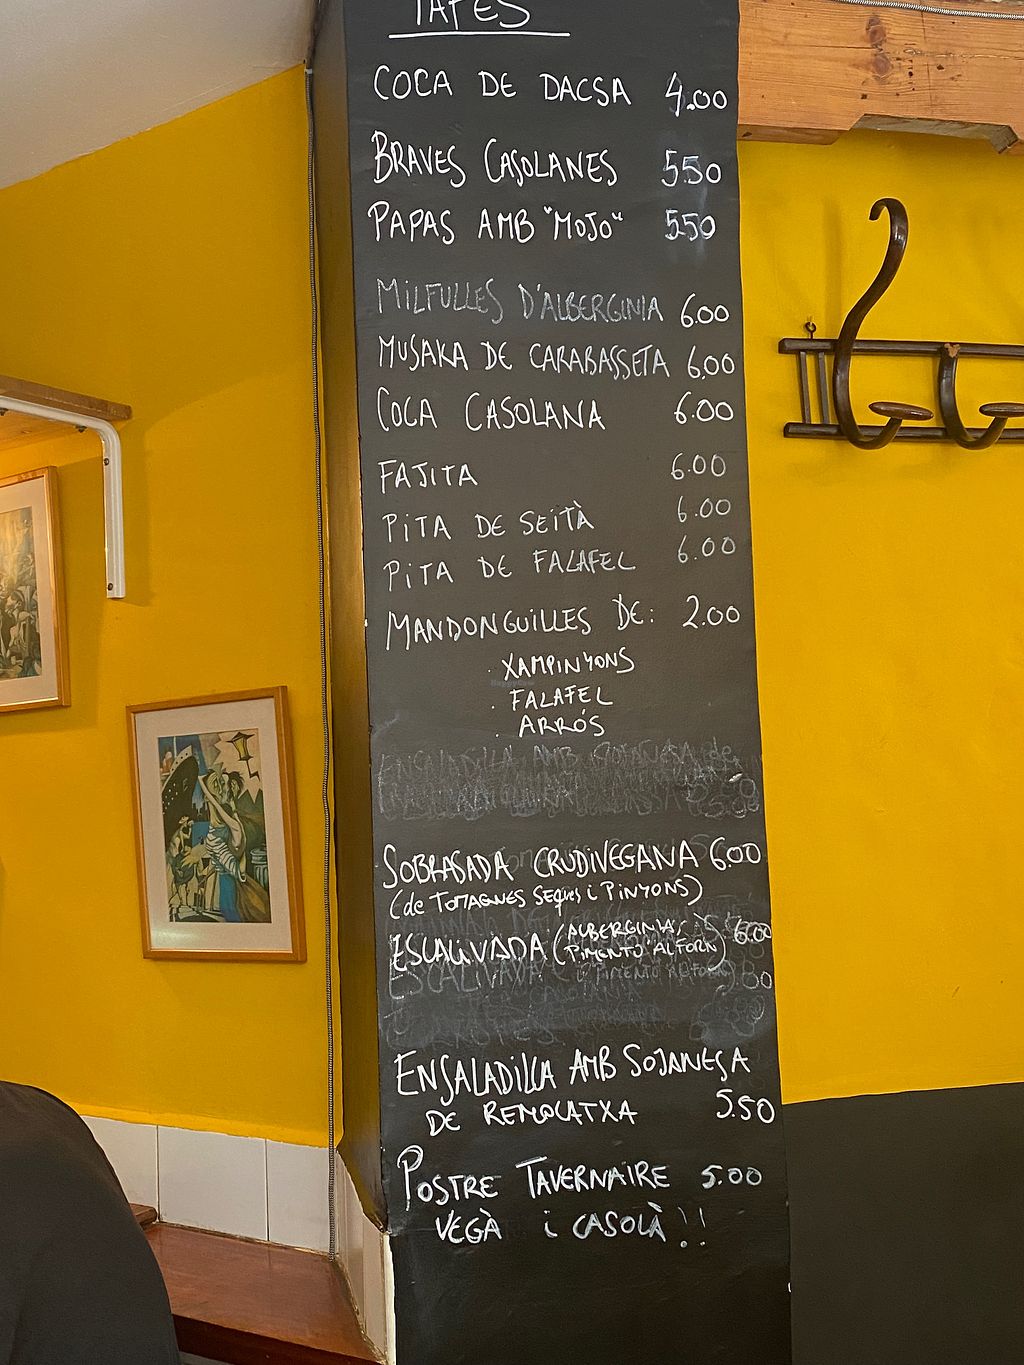 TAPES
COCA DE DACSA 4.00
BRAVES CASOLANES 5.50
PAPAS AMB "MOJO" 5.50
MILFULLES D'ALBERGINIA 6.00
MUSAKA DE CARABASSETA 6.00
COCA CASOLANA 6.00
FAJITA 6.00
PITA DE SEITÀ 6.00
PITA DE FALAFEL 6.00
MANDONGUILLES DE: 2.00
. XAMPINYONS
. FALAFEL
. ARRÓS
ENSALADILLA AMB SOJANESA de
SOBRASADA CRUDIVEGANA 6.00
(de TOMAQUES SEQUES i PINYONS)
ESCALIVADA (ALBERGINIA, 6.00
PIMENTO AL FORN)
ESCALIVADA i PIMENTO AL FORN
ENSALADILLA AMB SOJANESA
DE REMOLATXA 5.50
POSTRE TAVERNAIRE 5.00
VEGÀ i CASOLÀ!!